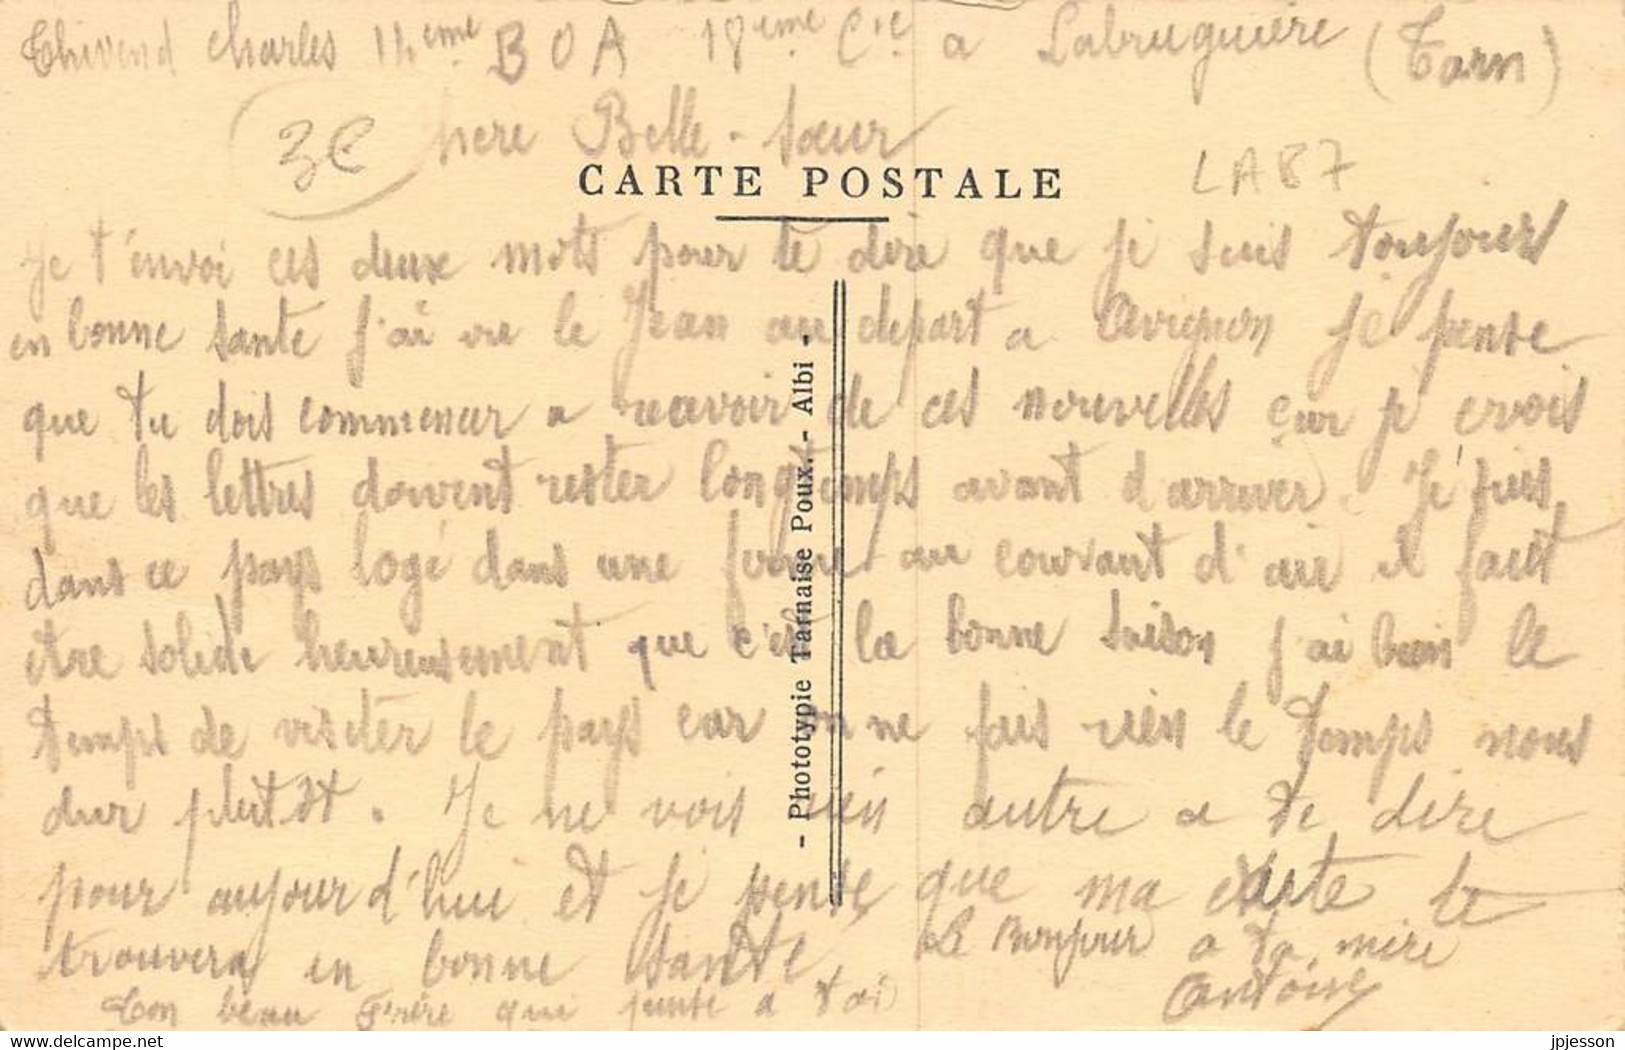 Thivend Charles 14eme BOA 18eme Cie a Labruguière (Tarn)
3e
Chere Belle-sœur
CARTE POSTALE
LA87
Je t'envoi ces deux mots pour te dire que je suis toujours
en bonne santé j'ai vu le Jean au départ a Avignon je pense
que tu dois commencer a recevoir de ces nouvelles car je crois
que les lettres doivent rester longtemps avant d'arriver. Je suis
dans ce pays logé dans une ferme au courant d'air il faut
etre solide heureusement que c'est la bonne saison j'ai bien le
temps de visiter le pays car on ne fais rien le temps nous
dur plutôt. Je ne vois rien autre a te dire
pour aujourd'hui et je pense que ma carte te
trouvera en bonne santé
Le Bonjour a ta mère
Ton beau Frère qui pense a toi
Antoine
- Phototypie Tarnaise Poux. - Albi -
www.delcampe.net
jpjesson